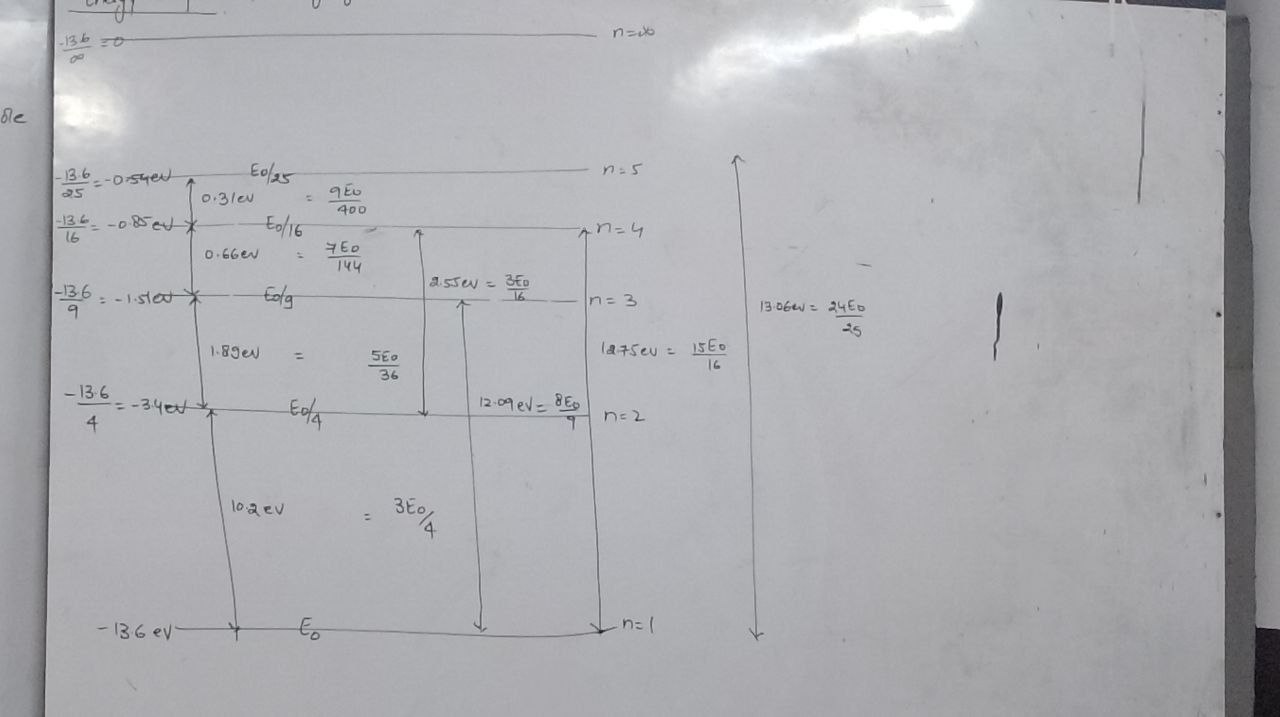 -13.6/∞ = 0 n=∞
δle
-13.6/25 = -0.54ev E0/25 n=5
0.31ev = 9E0/400
-13.6/16 = -0.85ev E0/16 n=4
0.66ev = 7E0/144
2.55ev = 3E0/16
-13.6/9 = -1.51ev E0/9 n=3
13.06ev = 24E0/25
1.89ev = 5E0/36
12.75ev = 15E0/16
-13.6/4 = -3.4ev E0/4 n=2
12.09ev = 8E0/9
10.2ev = 3E0/4
-13.6 ev E0 n=1